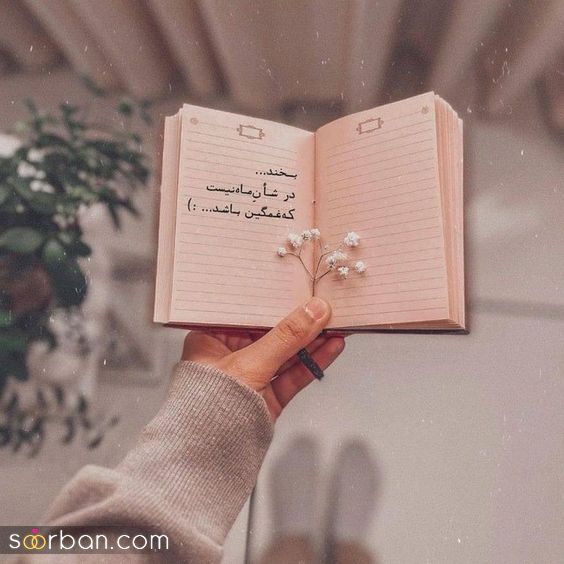 بـخند...
در شأنِ ماه نیست
که غمگین باشد... :)
soorban.com